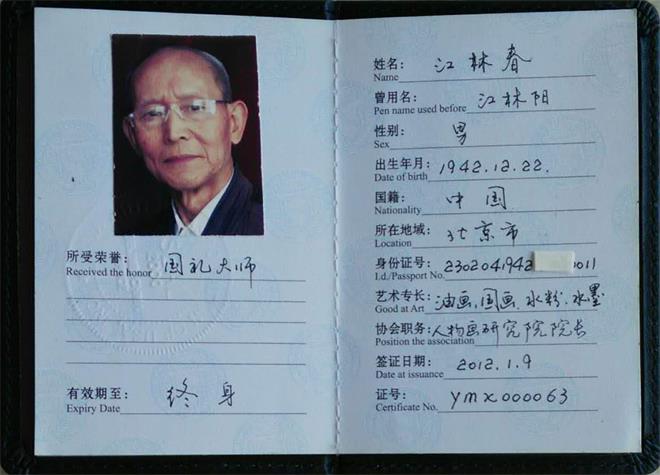 所受荣誉：
Received the honor 国礼大师
有效期至：
Expiry Date 终身
姓名：
Name 江林春
曾用名：
Pen name used before 江林阳
性别：
Sex 男
出生年月：
Date of birth 1942.12.22.
国籍：
Nationality 中国
所在地域：
Location 北京市
身份证号：
I.d./Passport No. 2302041942 0011
艺术专长：
Good at Art 油画、国画、水粉、水墨
协会职务：
Position the association 人物画研究院院长
签证日期：
Date at issuance 2012.1.9
证号：
Certificate No. ymx000063